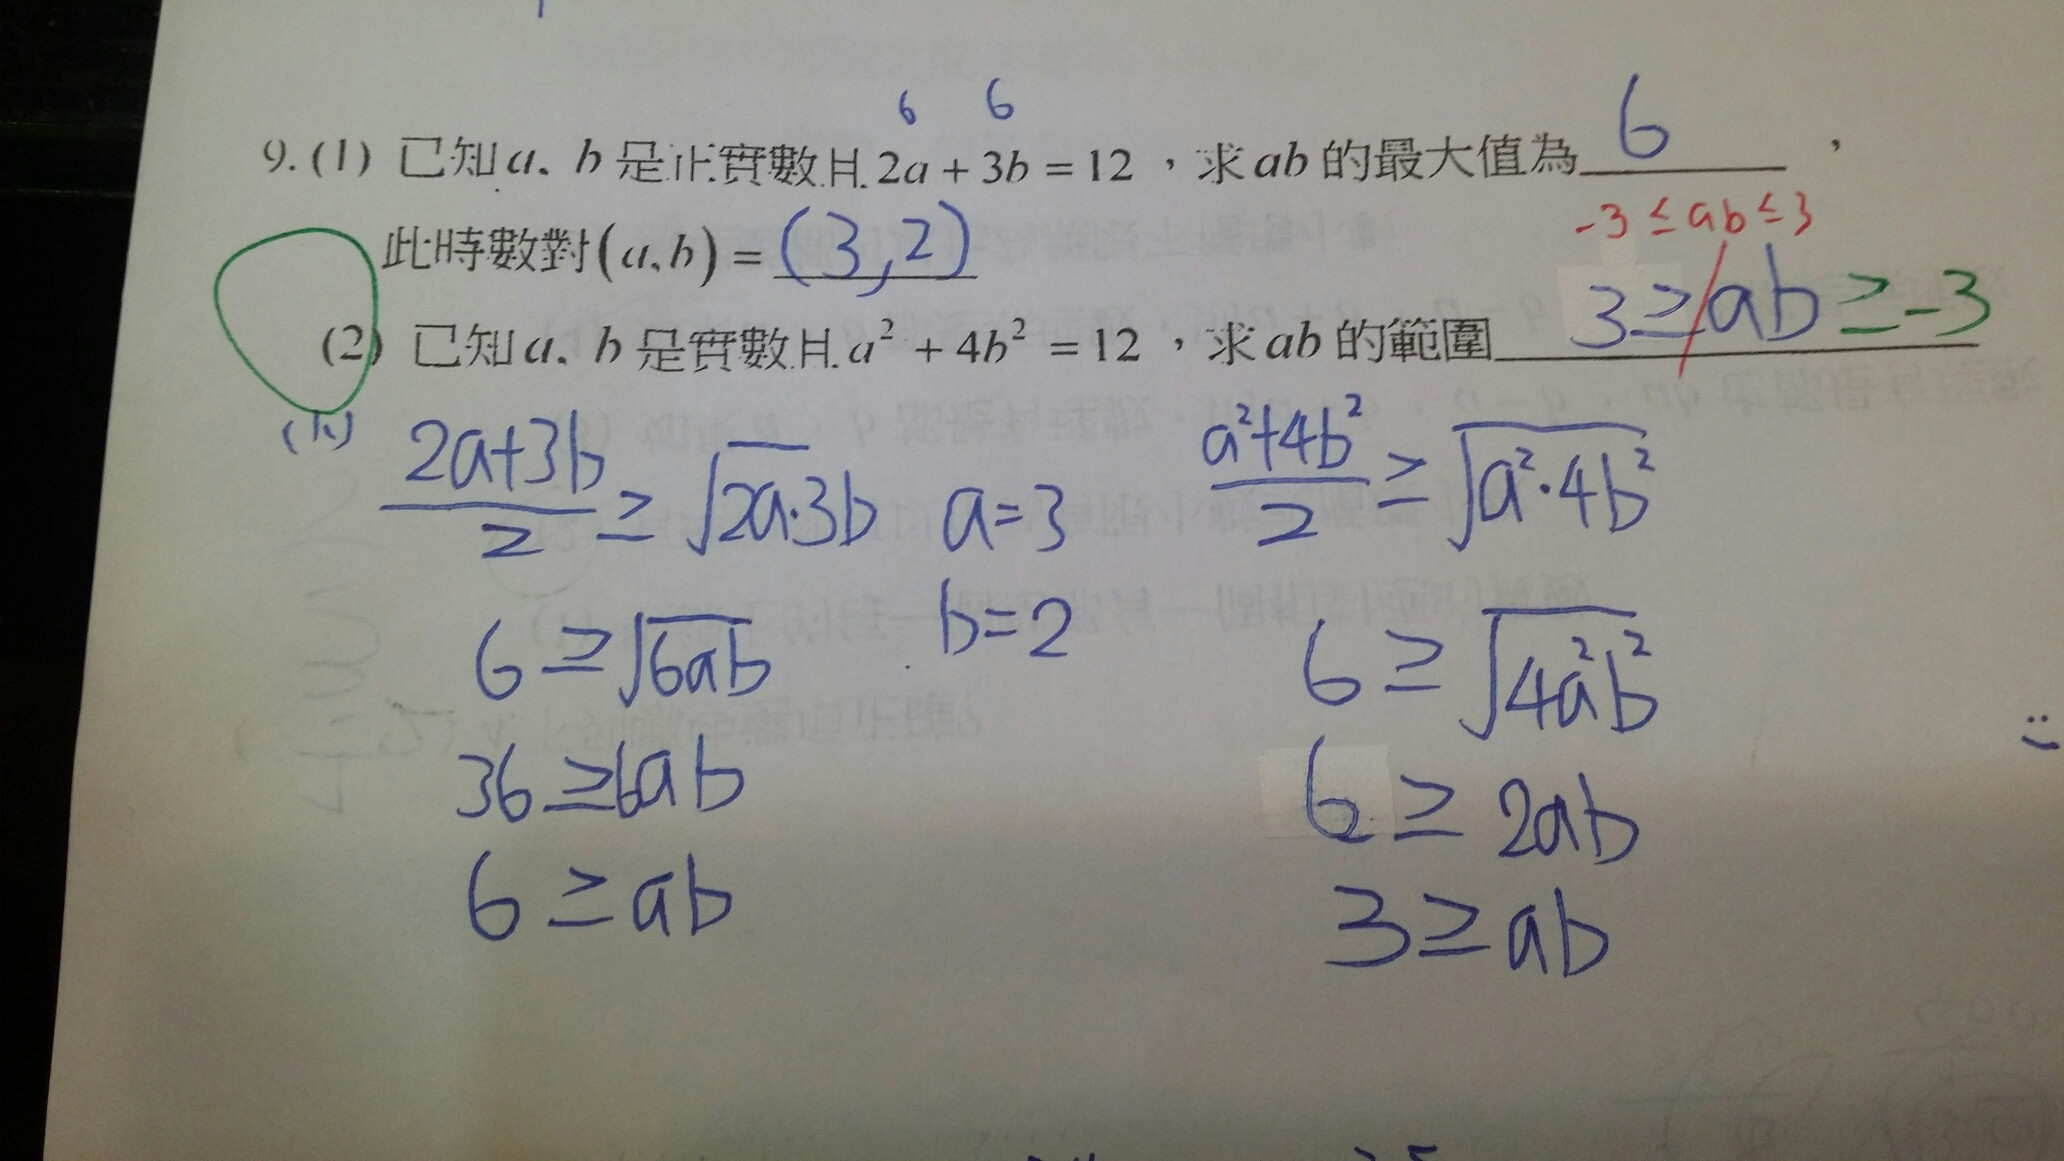 6 6
9.(1) 已知a、b是正實數且2a+3b=12，求ab的最大值為 6 ，
-3≤ab≤3
此時數對(a,b)= (3,2)
(2) 已知a、b是實數且a²+4b²=12，求ab的範圍 3≥ab≥-3
2a+3b/2 ≥ √2a·3b
6≥√6ab
36≥6ab
6≥ab
a=3
b=2
a²+4b²/2 ≥ √a²·4b²
6≥√4a²b²
6≥2ab
3≥ab